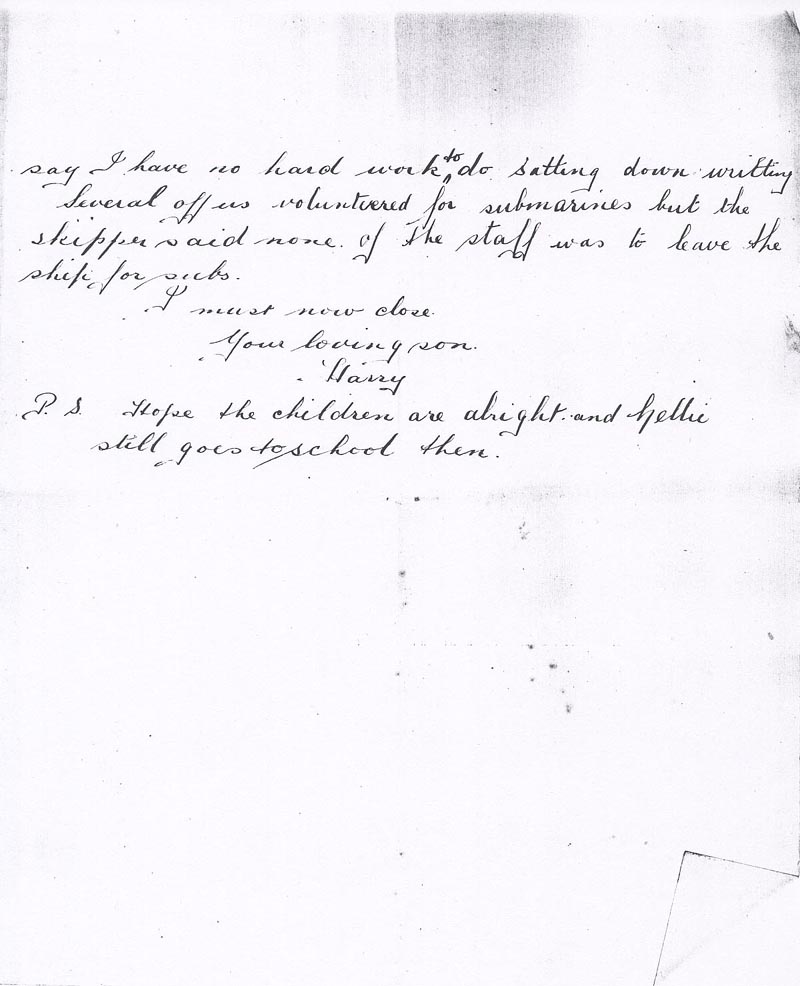 say I have no hard work to do satting down writting
Several off us volunteered for submarines but the
skipper said none. of the staff was to leave the
ship for subs.
I must now close.
Your loving son.
Harry
P.S. Hope the children are alright. and Nellie
still goes to school then.